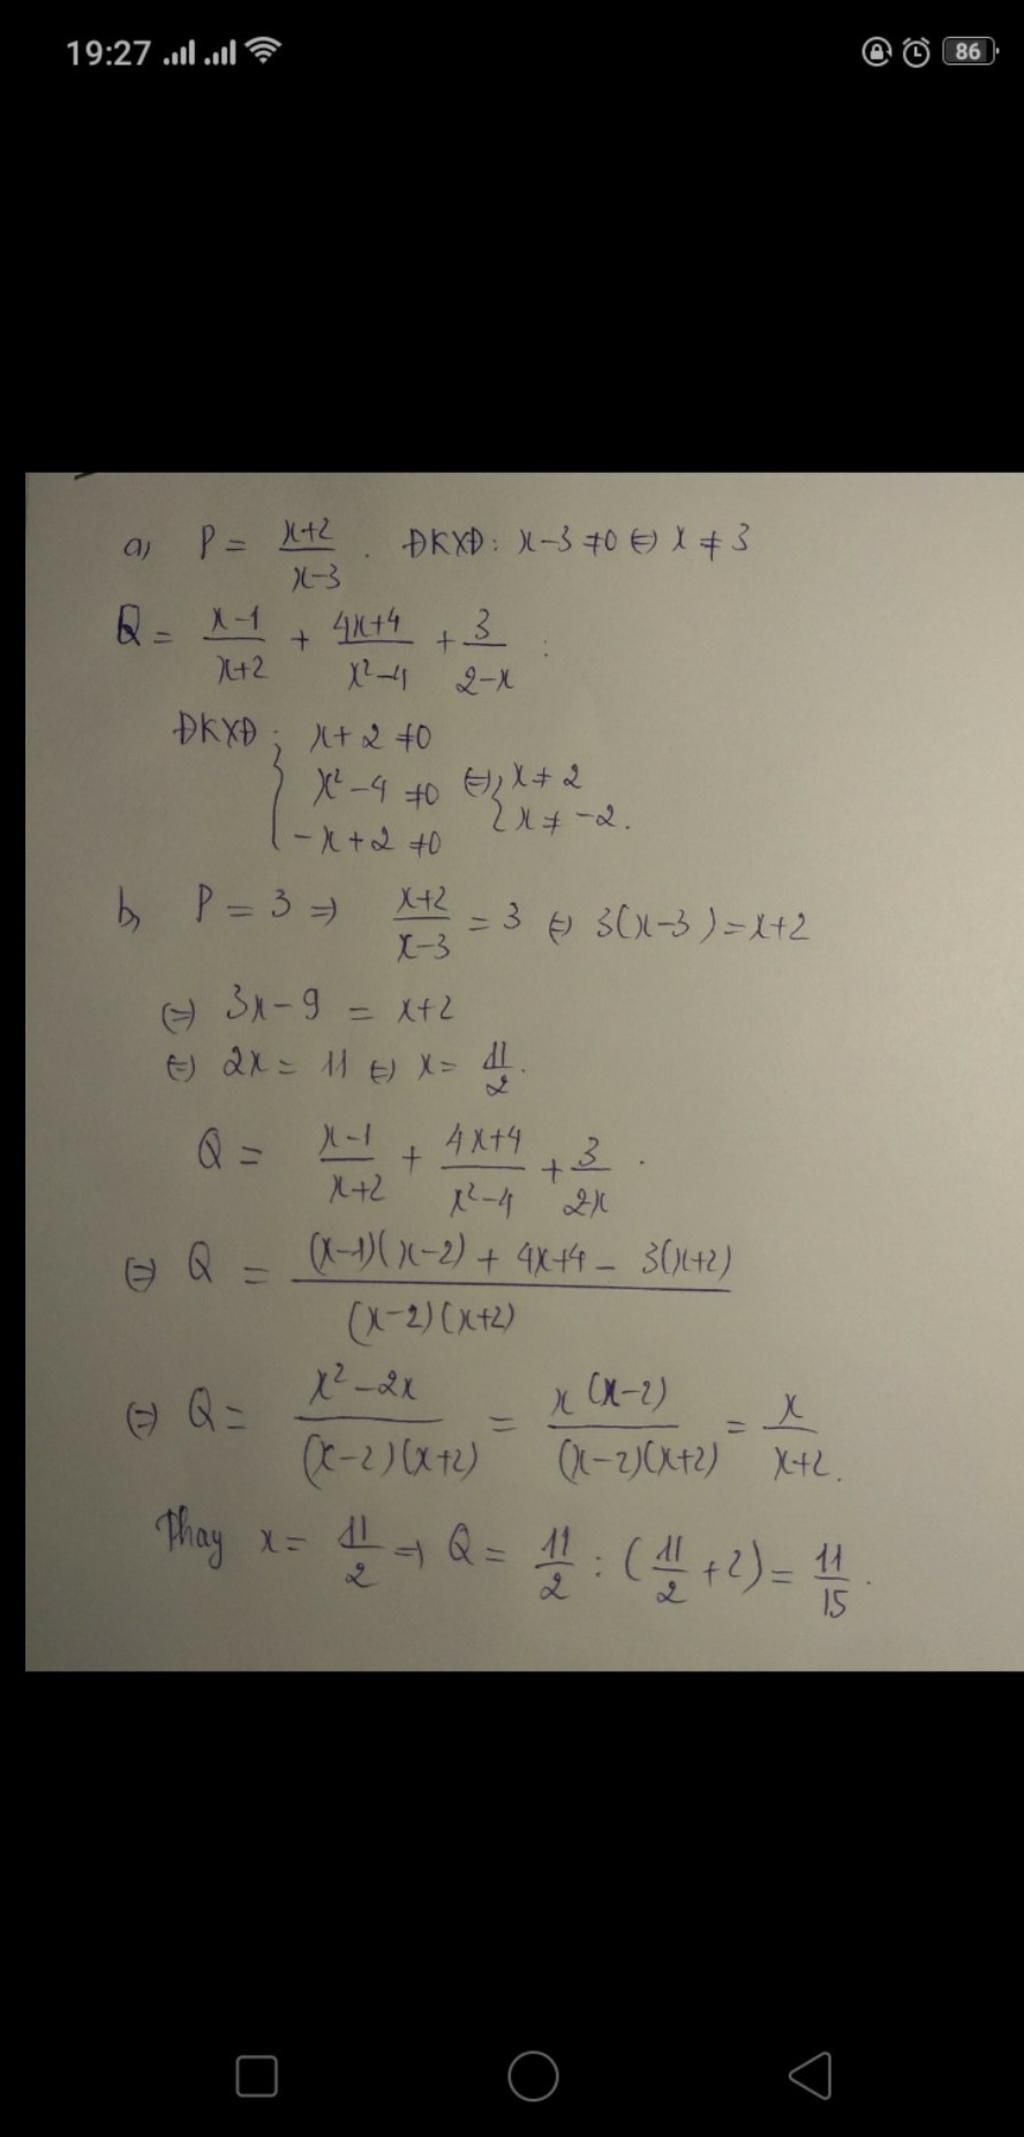 19:27
86
a, P = \frac{x+2}{x-3} . ĐKXĐ: x-3 ≠0 ⇔ x ≠ 3
Q = \frac{x-1}{x+2} + \frac{4x+4}{x²-4} + \frac{3}{2-x} :
ĐKXĐ: { x+2 ≠0
x²-4 ≠0 ⇔ { x ≠ 2
x ≠ -2.
-x+2 ≠0
b, P = 3 ⇒ \frac{x+2}{x-3} = 3 ⇔ 3(x-3) = x+2
⇔ 3x-9 = x+2
⇔ 2x = 11 ⇔ x = \frac{11}{2}.
Q = \frac{x-1}{x+2} + \frac{4x+4}{x²-4} + \frac{3}{2x} .
⇔ Q = \frac{(x-1)(x-2) + 4x+4 - 3(x+2)}{(x-2)(x+2)}
⇔ Q = \frac{x²-2x}{(x-2)(x+2)} = \frac{x(x-2)}{(x-2)(x+2)} = \frac{x}{x+2}.
Thay x = \frac{11}{2} ⇒ Q = \frac{11}{2} : (\frac{11}{2} + 2) = \frac{11}{15}.